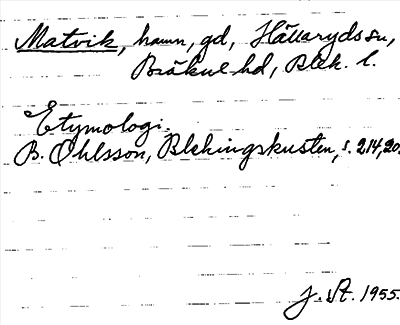 Matvik, hamn, gd, Hällaryds sn,
Bräkne hd, Blek. l.
Etymologi.
B. Ohlsson, Blekingskusten, s. 214, 20.
J. St. 1955.